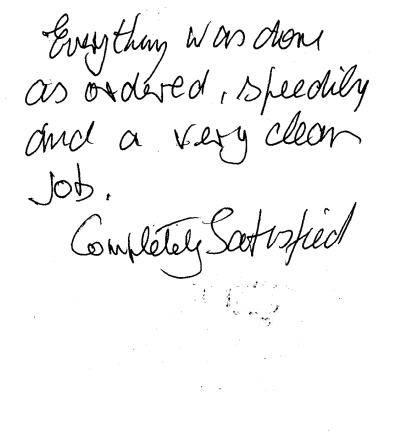 Everything was done
as ordered, speedily
and a very clean
job.
Completely Satisfied